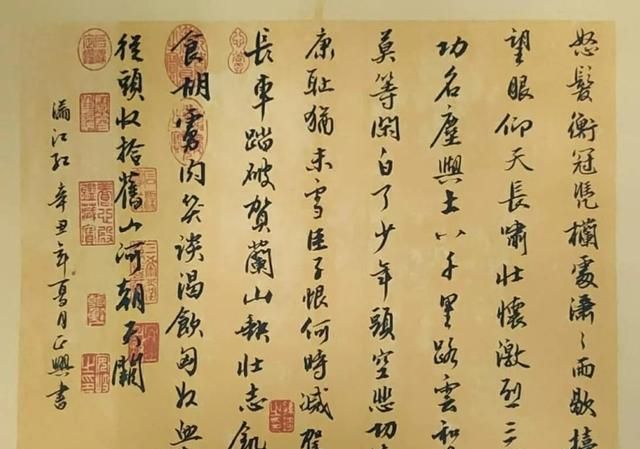 怒髮衝冠凭欄處瀟々而歇
望眼仰天長嘯壯懷激烈三
功名塵與土八千里路雲和
莫等閑白了少年頭空悲切
康恥猶未雪臣子恨何時滅駕
長車踏破賀蘭山缺壯志飢
食胡虜肉笑談渴飲匈奴血
從頭收拾舊山河朝天闕
滿江紅 辛丑年夏月正興書